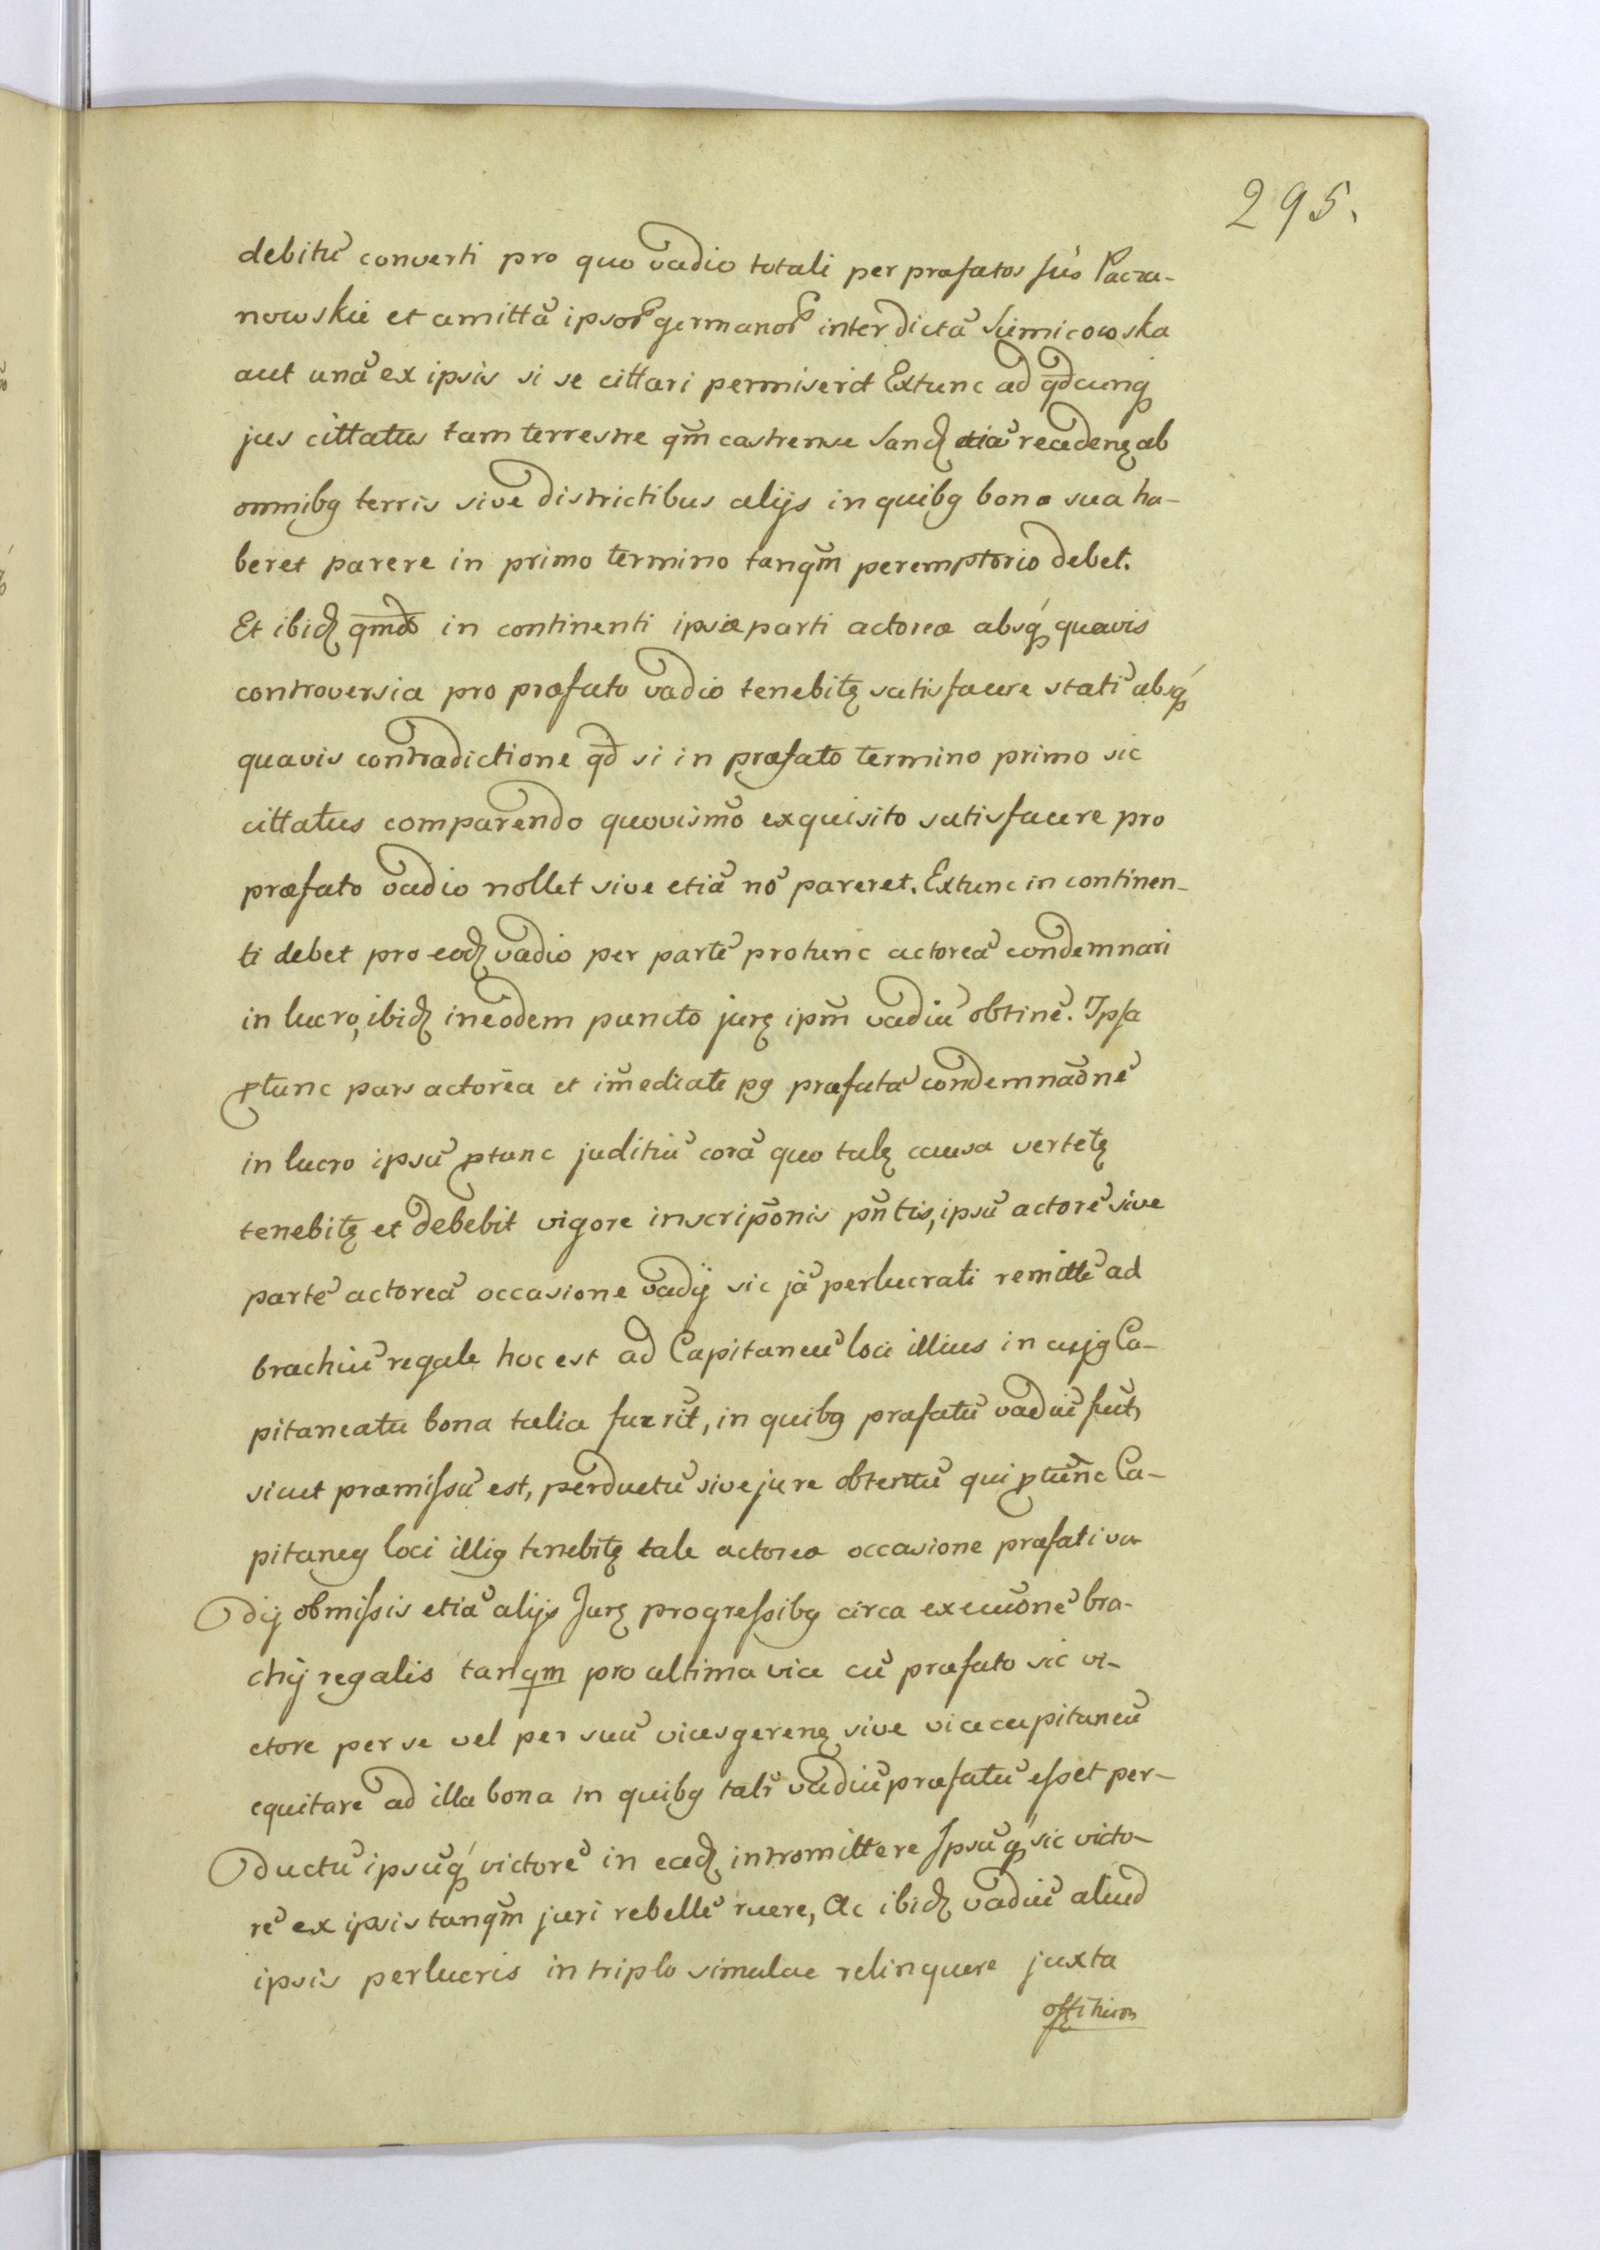 295.
debitū converti pro quo vadio totali per præfatos suō Pacza-
nowskie et amittā ipsoꝝ germanoꝝ inter dictā Siemicowska
aut unā ex ipsis si se cittari permiserit Extunc ad qđcunqꝫ
jus cittatus tam terrestre qm̄ castrense Sandꝫ etiā recedenꝫ ab
omnibꝫ terris sive districtibus alijs in quibꝫ bona sua ha-
beret parere in primo termino tanqm̄ peremptorio debet.
Et ibidꝫ in continenti ipsæ parti actoreæ absqꝫ quavis
controversia pro præfato vadio tenebitꝫ satisfacere stati absqꝫ
quavis contradictione qđ si in præfato termino primo sic
cittatus comparendo quovismō exquisito satisfacere pro
præfato vadio nollet sive etiā nō pareret. Extunc in continen-
ti debet pro eodꝫ vadio per partē protunc actoreā condemnari
in lucro, ibidꝫ in eodem puncto jurꝫ ipm̄ vadiū obtinē. Ipsa
ꝓtunc pars actorea et im̄ediate pꝫ præfatā condemnāonē
in lucro ipsū ꝓtunc juditiū corā quo talꝫ causa vertetꝫ
tenebitꝫ et debebit vigore inscripōnis pn̄tis, ipsū actorē sive
partē actoreā occasione vadij sic jā perlucrati remittē ad
brachiū regale hoc est ad Capitaneū loci illius in cujꝫ Ca-
pitaneatu bona talia fuerīt, in quibꝫ præfatū vadiū fuīt,
sicut præmissū est, perductū sive jure obtentū qui ꝓtunc Ca-
pitaneꝫ loci illiꝫ tenebitꝫ tale actoreæ occasione præfati va-
dij obmissis etiā alijs Jurꝫ progressibꝫ circa execuōnē bra-
chij regalis tanqm pro ultima vice cū præfato sic vi-
ctore per se vel per suū vicesgerenꝫ sive vicecapitaneū
equitare ad illa bona in quibꝫ tali vadiū præfatū esset per-
ductū ipsūqꝫ victorē in eadꝫ intromittere Ipsūqꝫ sic victo-
rē ex ipsis tanqm̄ juri rebellē ruere, Ac ibidꝫ vadiū aliud
ipsis perlucris in triplo simulac relinquere juxta